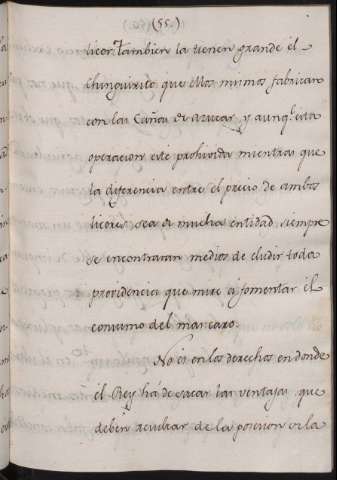 (55.)
licor. Tambien la tienen grande el
chinguirito que ellos mismos fabrican
con las Cañas de azucar, y aunq.e esta
operacion esté prohivida mientras que
la diferencia entre el precio de ambos
licores sea de mucha entidad, siempre
se encontraran medios de eludir toda
providencia que mire á fomentar el
consumo del mas caro.
No es en los derechos en donde
el Rey há de sacar las ventajas que
deben resultar de la posesion de la